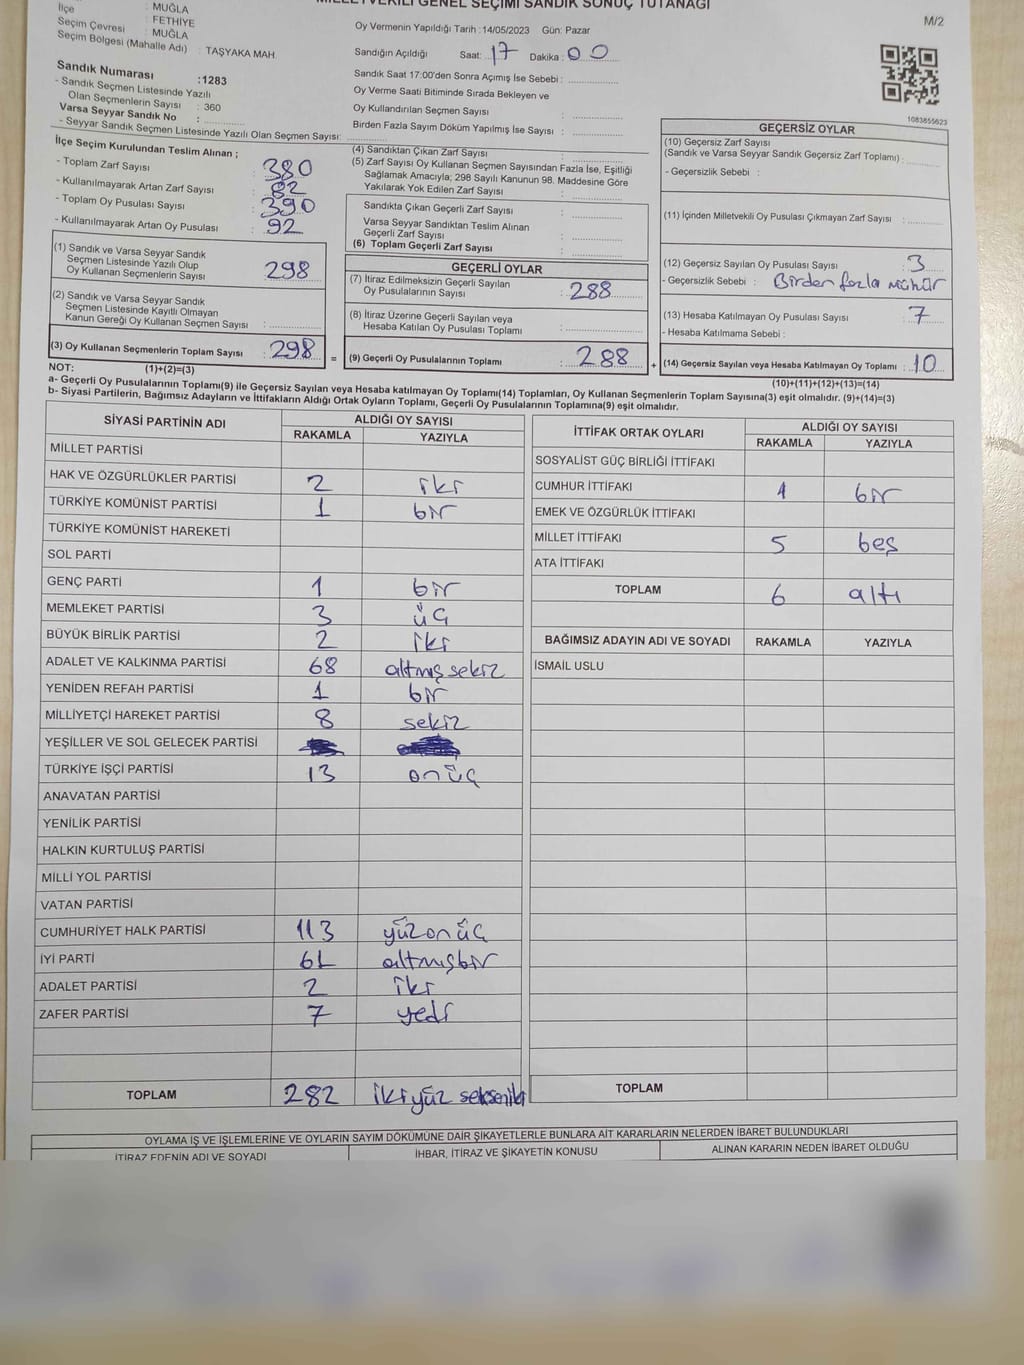 MİLLETVEKİLİ GENEL SEÇİMİ SANDIK SONUÇ TUTANAĞI
M/2
: MUĞLA
İlçe : FETHİYE
Seçim Çevresi : MUĞLA
Seçim Bölgesi (Mahalle Adı) : TAŞYAKA MAH.
Oy Vermenin Yapıldığı Tarih :14/05/2023 Gün: Pazar
Sandığın Açıldığı Saat: 17 Dakika: 00
Sandık Saat 17:00'den Sonra Açımış İse Sebebi :
Oy Verme Saati Bitiminde Sırada Bekleyen ve
Oy Kullandırılan Seçmen Sayısı :
Birden Fazla Sayım Döküm Yapılmış İse Sayısı :
Sandık Numarası :1283
- Sandık Seçmen Listesinde Yazılı
Olan Seçmenlerin Sayısı : 360
Varsa Seyyar Sandık No :
- Seyyar Sandık Seçmen Listesinde Yazılı Olan Seçmen Sayısı:
1083855623
İlçe Seçim Kurulundan Teslim Alınan ;
- Toplam Zarf Sayısı : 380
- Kullanılmayarak Artan Zarf Sayısı : 82
- Toplam Oy Pusulası Sayısı : 390
- Kullanılmayarak Artan Oy Pusulası : 92
(1) Sandık ve Varsa Seyyar Sandık
Seçmen Listesinde Yazılı Olup
Oy Kullanan Seçmenlerin Sayısı : 298
(2) Sandık ve Varsa Seyyar Sandık
Seçmen Listesinde Kayıtlı Olmayan
Kanun Gereği Oy Kullanan Seçmen Sayısı :
(3) Oy Kullanan Seçmenlerin Toplam Sayısı : 298 =
(1)+(2)=(3)
(4) Sandıktan Çıkan Zarf Sayısı :
(5) Zarf Sayısı Oy Kullanan Seçmen Sayısından Fazla İse, Eşitliği
Sağlamak Amacıyla; 298 Sayılı Kanunun 98. Maddesine Göre
Yakılarak Yok Edilen Zarf Sayısı :
Sandıkta Çıkan Geçerli Zarf Sayısı :
Varsa Seyyar Sandıktan Teslim Alınan
Geçerli Zarf Sayısı :
(6) Toplam Geçerli Zarf Sayısı :
GEÇERLİ OYLAR
(7) İtiraz Edilmeksizin Geçerli Sayılan
Oy Pusulalarının Sayısı : 288
(8) İtiraz Üzerine Geçerli Sayılan veya
Hesaba Katılan Oy Pusulası Toplamı :
(9) Geçerli Oy Pusulalarının Toplamı : 288 +
GEÇERSİZ OYLAR
(10) Geçersiz Zarf Sayısı
(Sandık ve Varsa Seyyar Sandık Geçersiz Zarf Toplamı) :
- Geçersizlik Sebebi :
(11) İçinden Milletvekili Oy Pusulası Çıkmayan Zarf Sayısı :
(12) Geçersiz Sayılan Oy Pusulası Sayısı : 3
- Geçersizlik Sebebi : Birden fazla mühür
(13) Hesaba Katılmayan Oy Pusulası Sayısı : 7
- Hesaba Katılmama Sebebi :
(14) Geçersiz Sayılan veya Hesaba Katılmayan Oy Toplamı : 10
(10)+(11)+(12)+(13)=(14)
NOT:
a- Geçerli Oy Pusulalarının Toplamı(9) ile Geçersiz Sayılan veya Hesaba katılmayan Oy Toplamı(14) Toplamları, Oy Kullanan Seçmenlerin Toplam Sayısına(3) eşit olmalıdır. (9)+(14)=(3)
b- Siyasi Partilerin, Bağımsız Adayların ve İttifakların Aldığı Ortak Oyların Toplamı, Geçerli Oy Pusulalarının Toplamına(9) eşit olmalıdır.
SİYASİ PARTİNİN ADI ALDIĞI OY SAYISI
RAKAMLA YAZIYLA
MİLLET PARTİSİ
HAK VE ÖZGÜRLÜKLER PARTİSİ 2 iki
TÜRKİYE KOMÜNİST PARTİSİ 1 bir
TÜRKİYE KOMÜNİST HAREKETİ
SOL PARTİ
GENÇ PARTİ 1 bir
MEMLEKET PARTİSİ 3 üç
BÜYÜK BİRLİK PARTİSİ 2 iki
ADALET VE KALKINMA PARTİSİ 68 altmış sekiz
YENİDEN REFAH PARTİSİ 1 bir
MİLLİYETÇİ HAREKET PARTİSİ 8 sekiz
YEŞİLLER VE SOL GELECEK PARTİSİ
TÜRKİYE İŞÇİ PARTİSİ 13 onüç
ANAVATAN PARTİSİ
YENİLİK PARTİSİ
HALKIN KURTULUŞ PARTİSİ
MİLLİ YOL PARTİSİ
VATAN PARTİSİ
CUMHURİYET HALK PARTİSİ 113 yüzonüç
İYİ PARTİ 61 altmışbir
ADALET PARTİSİ 2 iki
ZAFER PARTİSİ 7 yedi
TOPLAM 282 ikiyüz sekseniki
İTTİFAK ORTAK OYLARI ALDIĞI OY SAYISI
RAKAMLA YAZIYLA
SOSYALİST GÜÇ BİRLİĞİ İTTİFAKI
CUMHUR İTTİFAKI 1 bir
EMEK VE ÖZGÜRLÜK İTTİFAKI
MİLLET İTTİFAKI 5 beş
ATA İTTİFAKI
TOPLAM 6 altı
BAĞIMSIZ ADAYIN ADI VE SOYADI RAKAMLA YAZIYLA
İSMAİL USLU
TOPLAM
OYLAMA İŞ VE İŞLEMLERİNE VE OYLARIN SAYIM DÖKÜMÜNE DAİR ŞİKAYETLERLE BUNLARA AİT KARARLARIN NELERDEN İBARET BULUNDUKLARI
İTİRAZ EDENİN ADI VE SOYADI İHBAR, İTİRAZ VE ŞİKAYETİN KONUSU ALINAN KARARIN NEDEN İBARET OLDUĞU